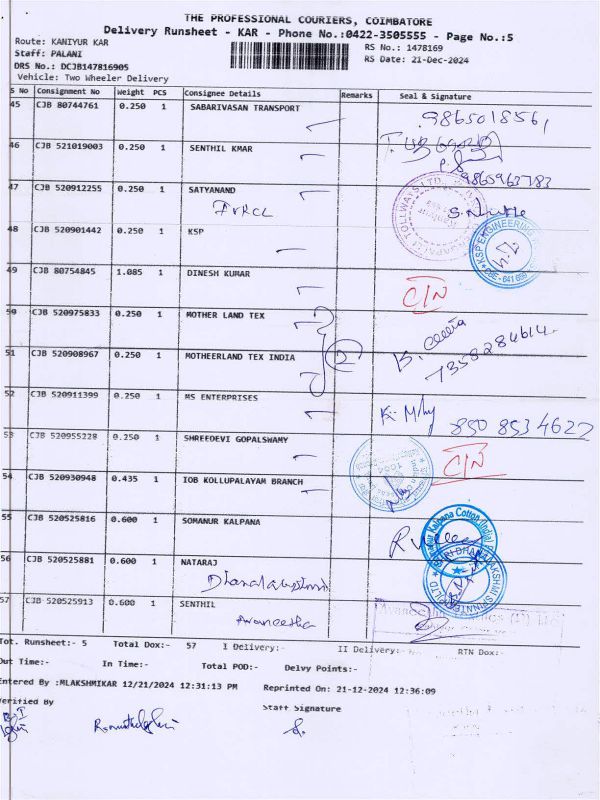 THE PROFESSIONAL COURIERS, COIMBATORE
Delivery Runsheet - KAR - Phone No.:0422-3505555 - Page No.:5
Route: KANIYUR KAR
RS No.: 1478169
Staff: PALANI
RS Date: 21-Dec-2024
DRS No.: DCJB147816905
Vehicle: Two Wheeler Delivery
S No Consignment No Weight PCS Consignee Details Remarks Seal & Signature
45 CJB 80744761 0.250 1 SABARIVASAN TRANSPORT
9865018561
46 CJB 521019003 0.250 1 SENTHIL KMAR
9865963783
47 CJB 520912255 0.250 1 SATYANAND
48 CJB 520901442 0.250 1 KSP
KSP ENGINEERING
CBE - 641 659
49 CJB 80754845 1.085 1 DINESH KUMAR
C/N
50 CJB 520975833 0.250 1 MOTHER LAND TEX
51 CJB 520908967 0.250 1 MOTHEERLAND TEX INDIA
2
7358284614
52 CJB 520911399 0.250 1 MS ENTERPRISES
850 8534622
53 CJB 520955228 0.250 1 SHREEDEVI GOPALSWAMY
C/N
54 CJB 520930948 0.435 1 IOB KOLLUPALAYAM BRANCH
55 CJB 520525816 0.600 1 SOMANUR KALPANA
Kalpana Cotton (India)
56 CJB 520525881 0.600 1 NATARAJ
DHANALAKSHMI
57 CJB 520525913 0.600 1 SENTHIL
Tot. Runsheet:- 5 Total Dox:- 57 I Delivery:- II Delivery:- RTN Dox:-
Out Time:- In Time:- Total POD:- Delvy Points:-
Entered By :MLAKSHMIKAR 12/21/2024 12:31:13 PM Reprinted On: 21-12-2024 12:36:09
Verified By Staff Signature